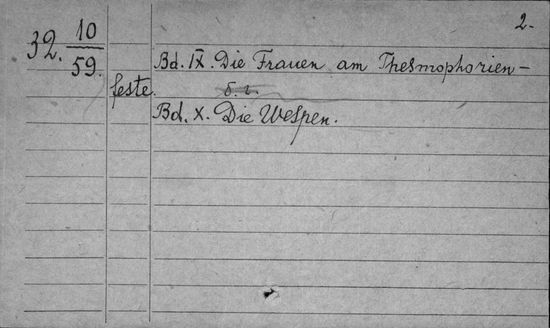 2.
32. 10/59.
Bd. IX. Die Frauen am Thesmophorien-
feste.
б. г.
Bd. X. Die Wespen.